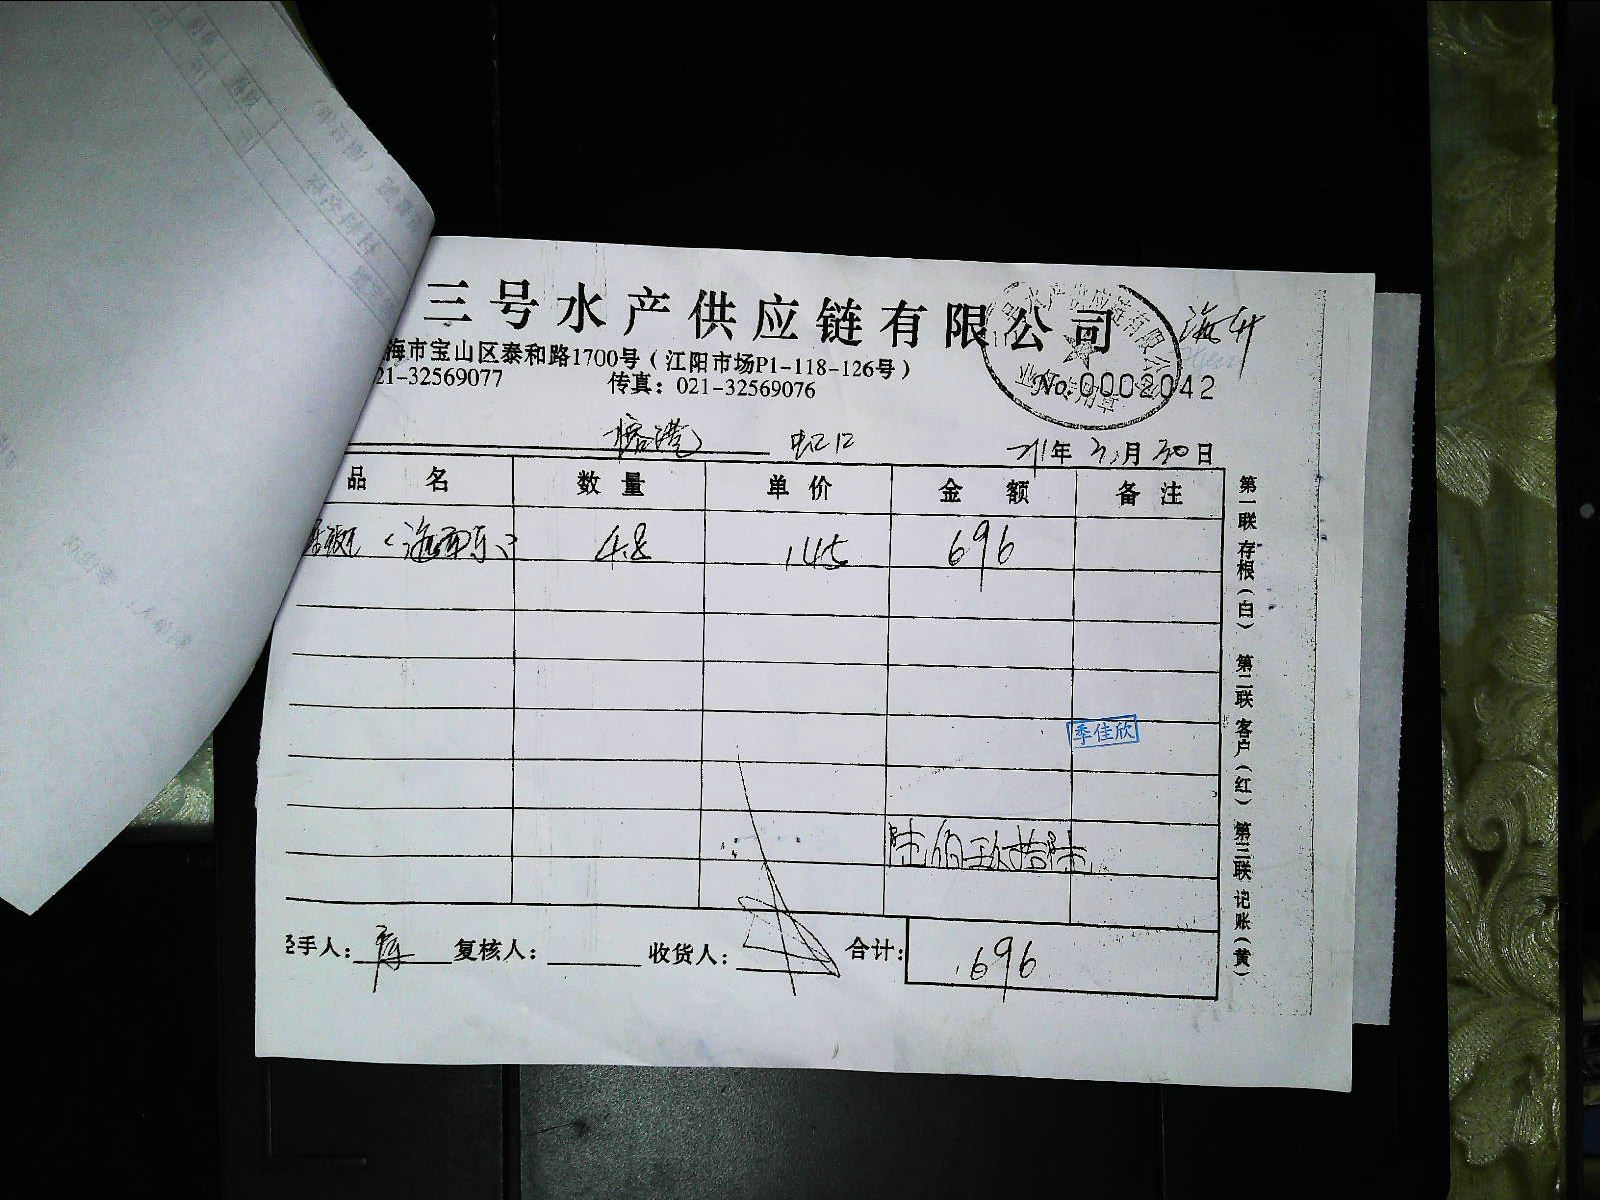 三号水产供应链有限公司
海升
海市宝山区泰和路1700号（江阳市场P1-118-126号）
21-32569077 传真：021-32569076
No.0002042
榕港 虹口 年 3月30日
品名 数量 单价 金额 备注
4.8 145 696
季佳欣
陆佰玖拾陆
经手人： 复核人： 收货人： 合计： 696
第一联 存根（白） 第二联 客户（红） 第三联 记账（黄）